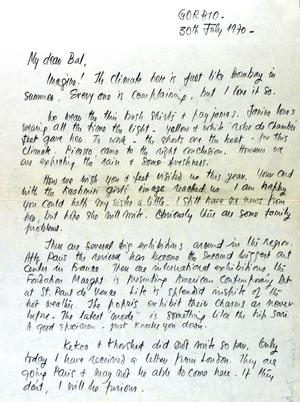 GORBIO -
30th July 1970 -
My dear Bal,
Imagine! The climate here is just like Bombay in
summer. Every one is complaining, but I love it so.
We wear the thin bush shirts & payjamas. Janine loves
wearing all the time the light - yellow & white robe de chambre
Geet gave her. To work - the shorts are the best - for this
climate. Picasso came to the right conclusion. However we
are expecting the rain & some freshness.
How we wish you & Geet visited us this year. Your card
with the Kashmiri girls' image reached us. I am happy
you could help my sister a little. I still have no news from
her, but hope she will write. Obviously there are some family
problems.
There are several big exhibitions around in this region.
After Paris the riviera has become the second biggest art
center in France. There are international exhibitions, the
Fondation Maeght is presenting American Contemporary Art
at St. Paul de Vence. Life is splendid inspite of the
hot weather. The people exhibit their charms as never
before. The latest 'mode' is something like the hip sari.
A good specimen - just knocks you down.
Kekoo & Khorshed did not write so far. Only
today I have received a letter from London. They are
going Paris & may not be able to come here. If they
don't, I will be furious.